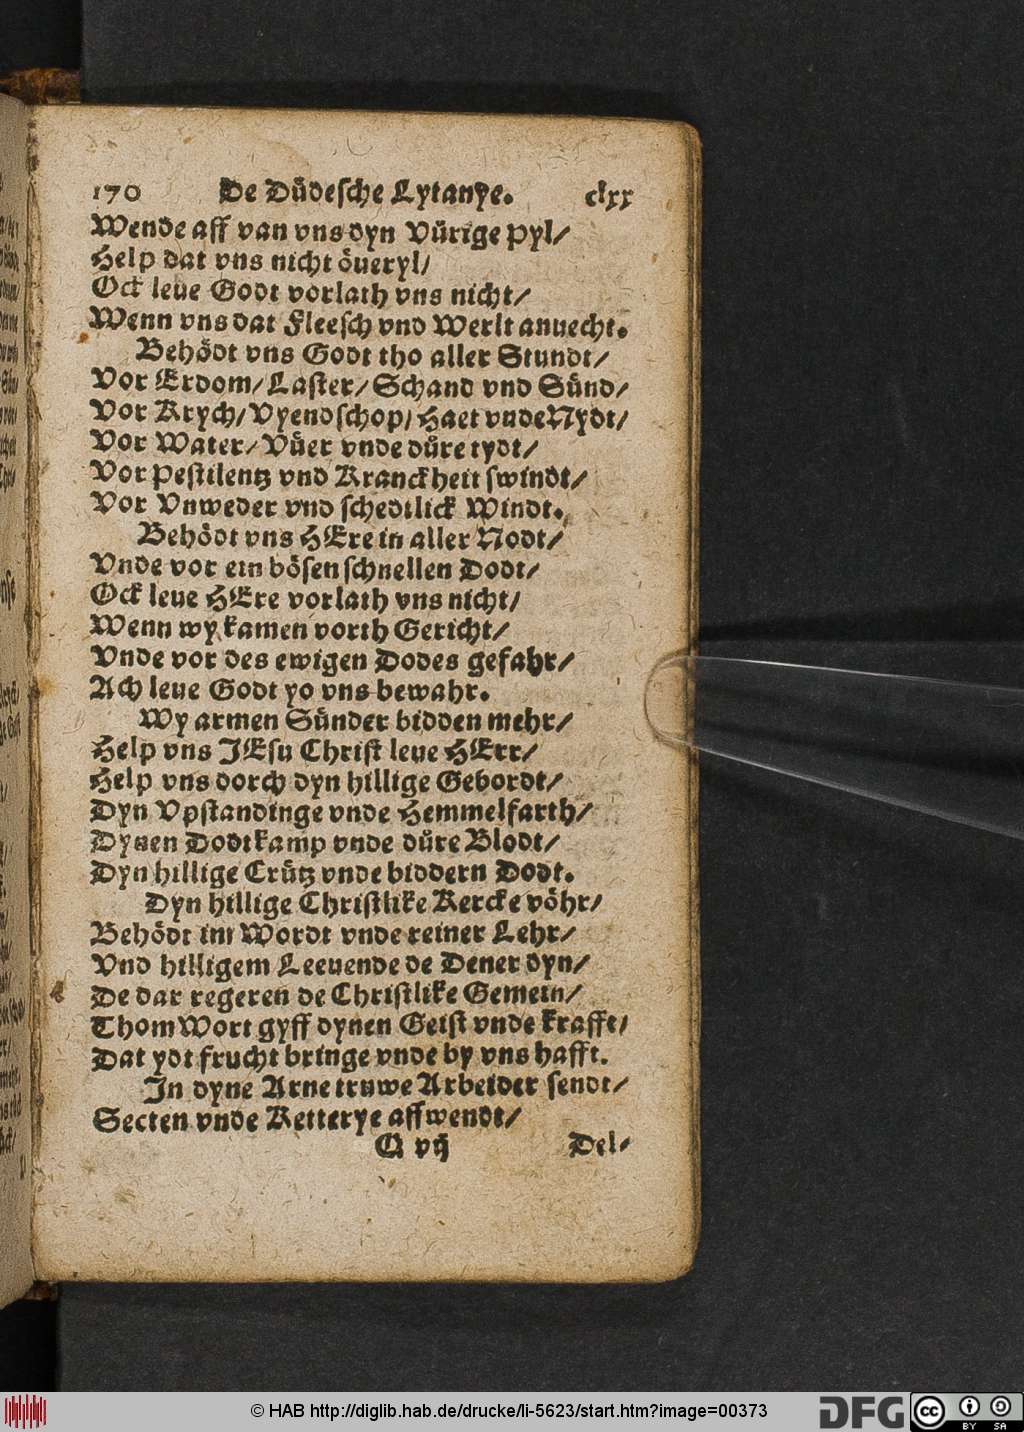 170 De Düdesche Lytanye. clxx
Wende aff van vns dyn Vürige Pyl/
Help dat vns nicht öueryl/
Ock leue Godt vorlath vns nicht/
Wenn vns dat Fleesch vnd Werlt anuecht.
Behödt vns Godt tho aller Stundt/
Vor Erdom/ Laster/ Schand vnd Sünd/
Vor Krych/ Vyendschop/ Haet vnde Nydt/
Vor Water/ Vüer vnde düre tydt/
Vor Pestilentz vnd Kranckheit swindt/
Vor Vnweder vnd schedtlick Windt.
Behödt vns HEre in aller Nodt/
Vnde vor ein bösen schnellen Dodt/
Ock leue HEre vorlath vns nicht/
Wenn wy kamen vorth Gericht/
Vnde vor des ewigen Dodes gefahr/
Ach leue Godt yo vns bewahr.
Wy armen Sünder bidden mehr/
Help vns JEsu Christ leue HErr/
Help vns dorch dyn hillige Gebordt/
Dyn Vpstandinge vnde Hemmelfarth/
Dynen Dodtkamp vnde düre Blodt/
Dyn hillige Crütz vnde biddern Dodt.
Dyn hillige Christlike Kercke vöhr/
Behödt im Wordt vnde reiner Lehr/
Vnd hilligem Leeuende de Dener dyn/
De dar regeren de Christlike Gemein/
Thom Wort gyff dynen Geist vnde krafft/
Dat ydt frucht bringe vnde by vns hafft.
In dyne Arne truwe Arbeider sendt/
Secten vnde Ketterye affwendt/
Q vij Del-
© HAB http://diglib.hab.de/drucke/li-5623/start.htm?image=00373
DFG
cc BY SA